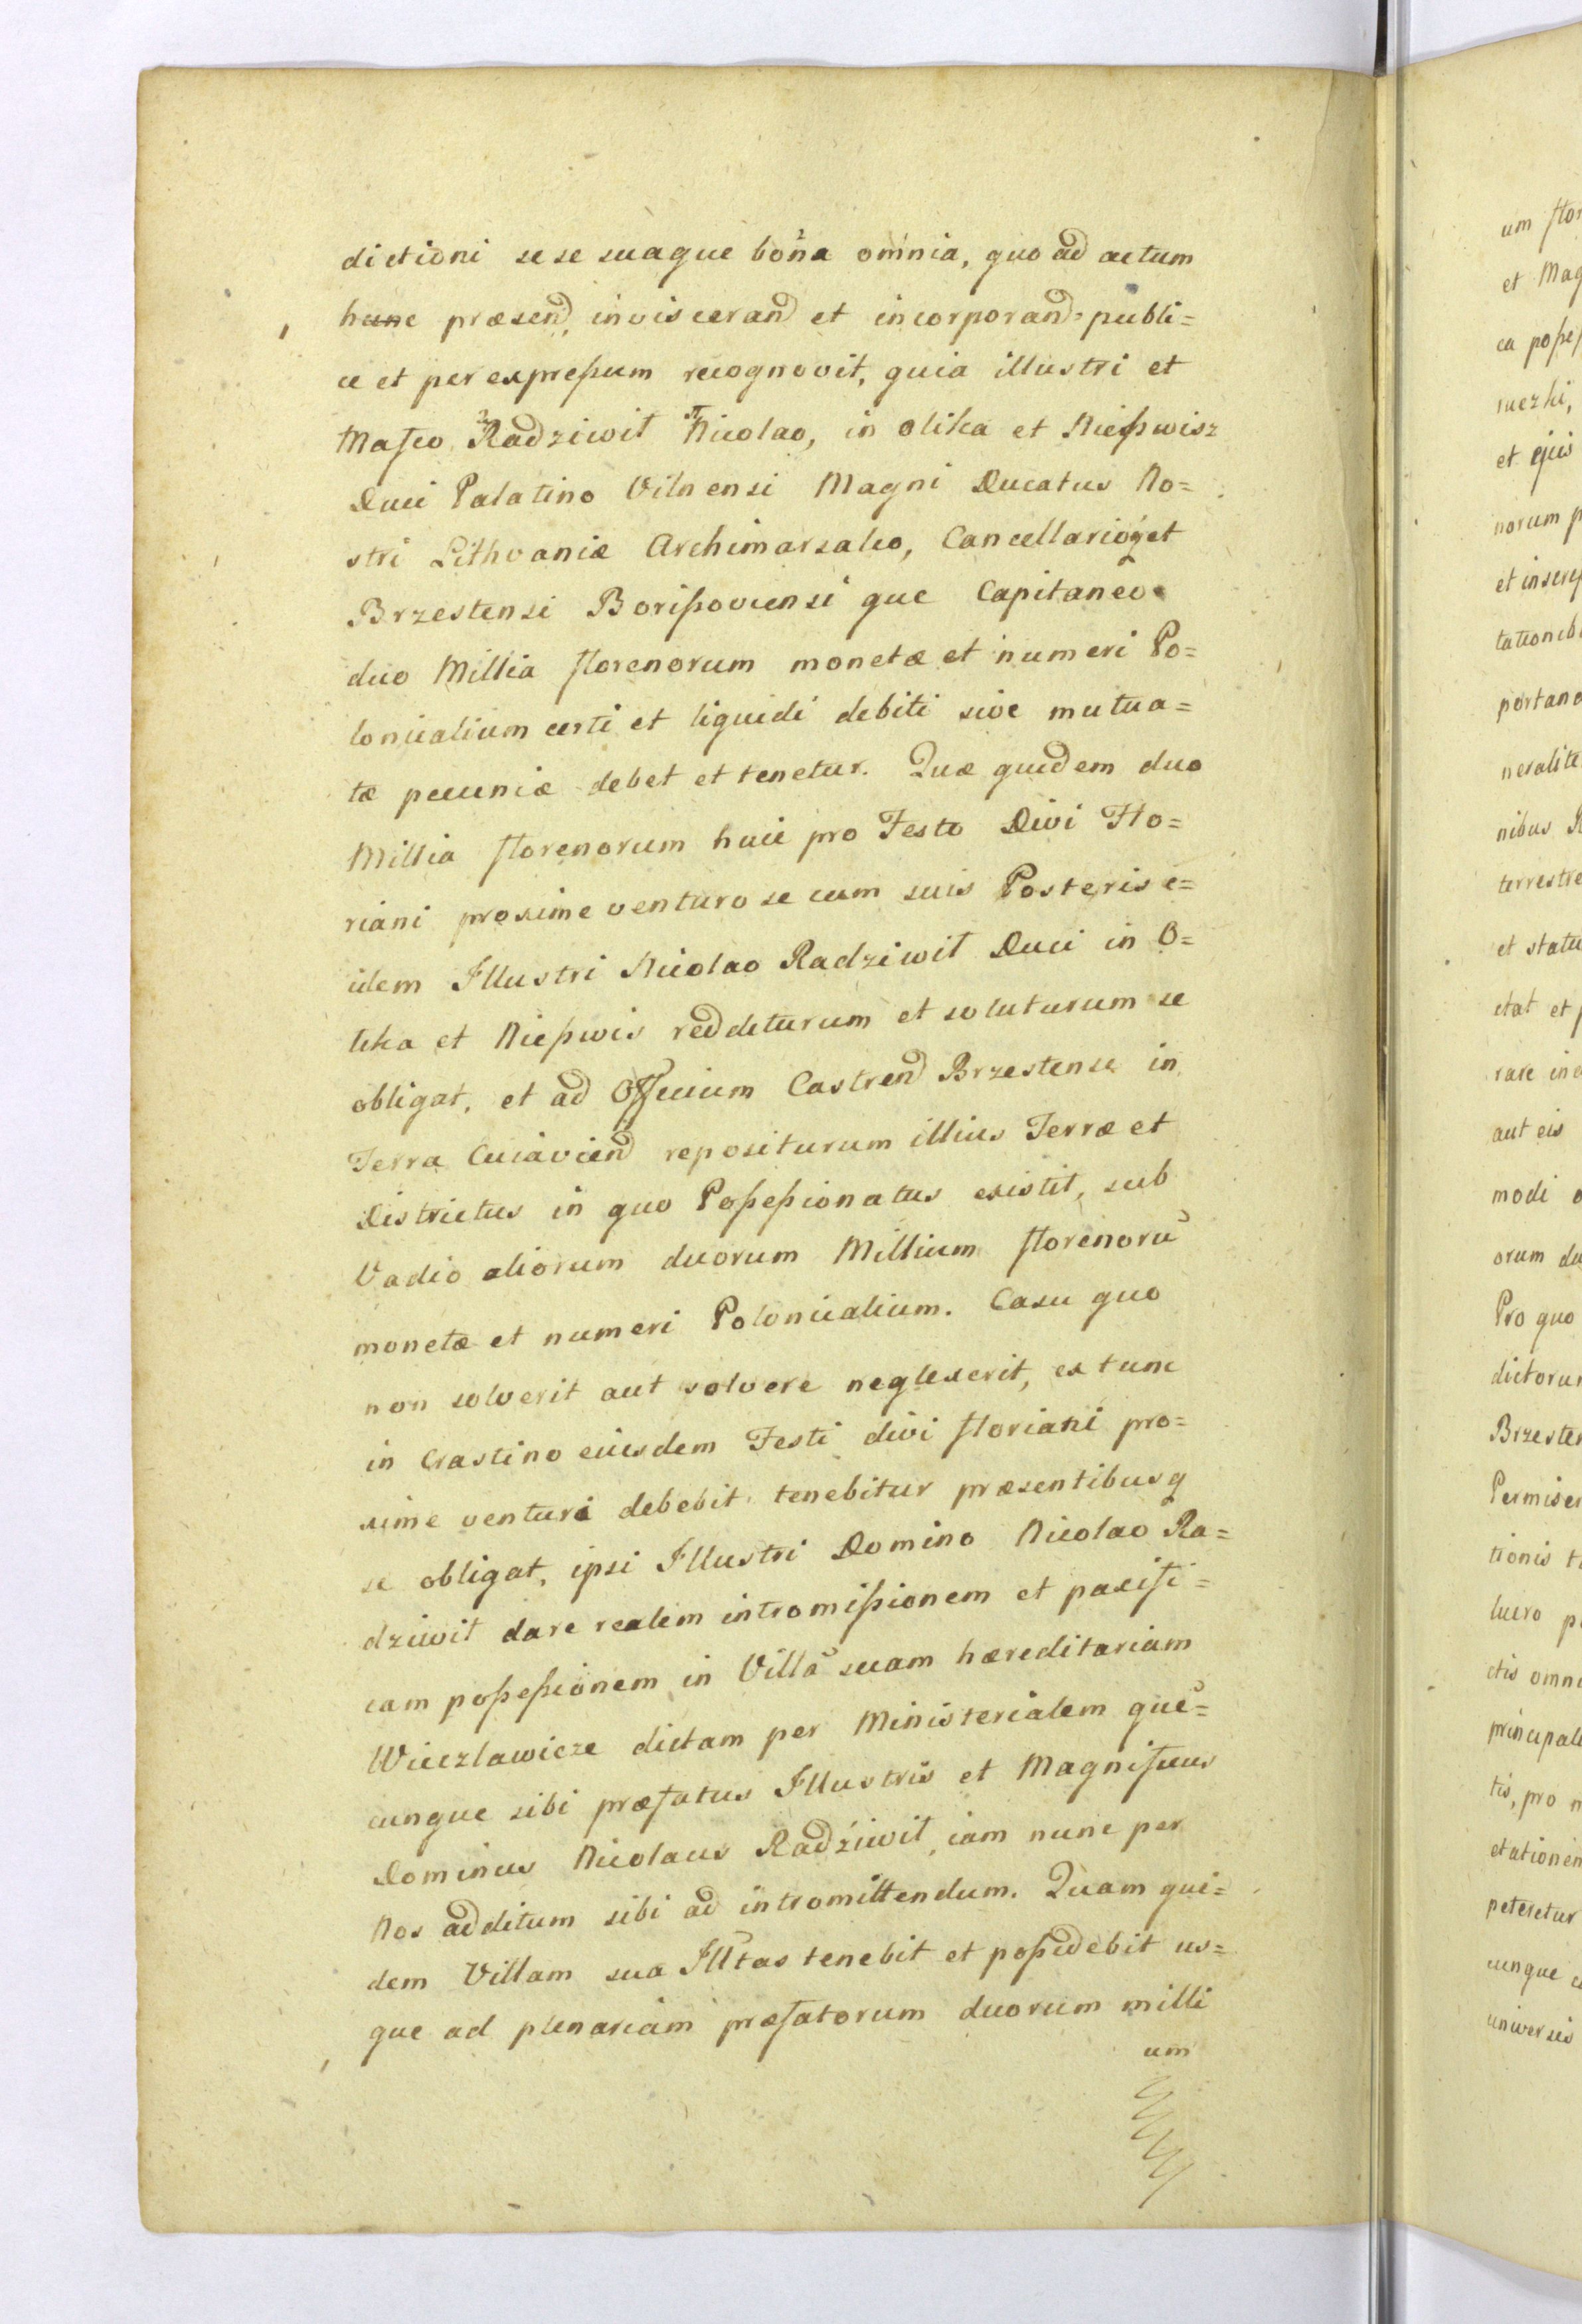 dictioni sese suaque bona omnia, quo ad actum
hunc præsend, inviscerand et incorporand publi=
ce et per expreßum recognovit, quia illustri et
Mafco Radziwił Nicolao, in Olika et Nießwisz
Duci Palatino Vilnensi Magni Ducatus No=
stri Lithvaniæ Archimarsalco, Cancellarioq et
Brzestensi Borißoviensi que Capitaneo
duo Millia florenorum monetæ et numeri Po=
lonicalium certi et liquidi debiti sive mutua=
tæ pecuniæ debet et tenetur. Quæ quidem duo
Millia florenorum huic pro Festo Divi Flo=
riani proxime venturo se cum suis Posteris e=
idem Illustri Nicolao Radziwił Duci in O=
lika et Nießwis redditurum et soluturum se
obligat, et ad Officium Castrend Brzestense in
Terra Cuiaviend repositurum illius Terræ et
Districtus in quo Poßeßionatus existit, sub
Vadio aliorum duorum Millium florenorũ
monetæ et numeri Polonicalium. Casu quo
non solverit aut solvere neglexerit, ex tunc
in Crastino eiusdem Festi divi floriani pro=
xime venturi debebit tenebitur præsentibusq
se obligat, ipsi Illustri Domino Nicolao Ra=
dziwił dare realem intromißionem et pacifi=
cam poßeßionem in Villã suam hæreditariam
Wieczlawicze dictam per Ministerialem quẽ=
cunque sibi præfatus Illustris et Magnificus
Dominus Nicolaus Radziwił, iam nunc per
Nos additum sibi ad intromittendum. Quam qui=
dem Villam sua Illtas tenebit et poßidebit us=
que ad plenariam præfatorum duorum milli
um
um flor
et Mag
ca poßeß
et ejus
norum p
et inscrip
tationib
portand
neralite
nibus R
terrestre
et statu
etat et p
rare in
aut eis
modi o
orum du
Pro quo
dictorum
Brzesten
Permiser
tionis t
lucro p
ctis omni
principali
tis, pro n
etationem
peteretur
cunque
universis